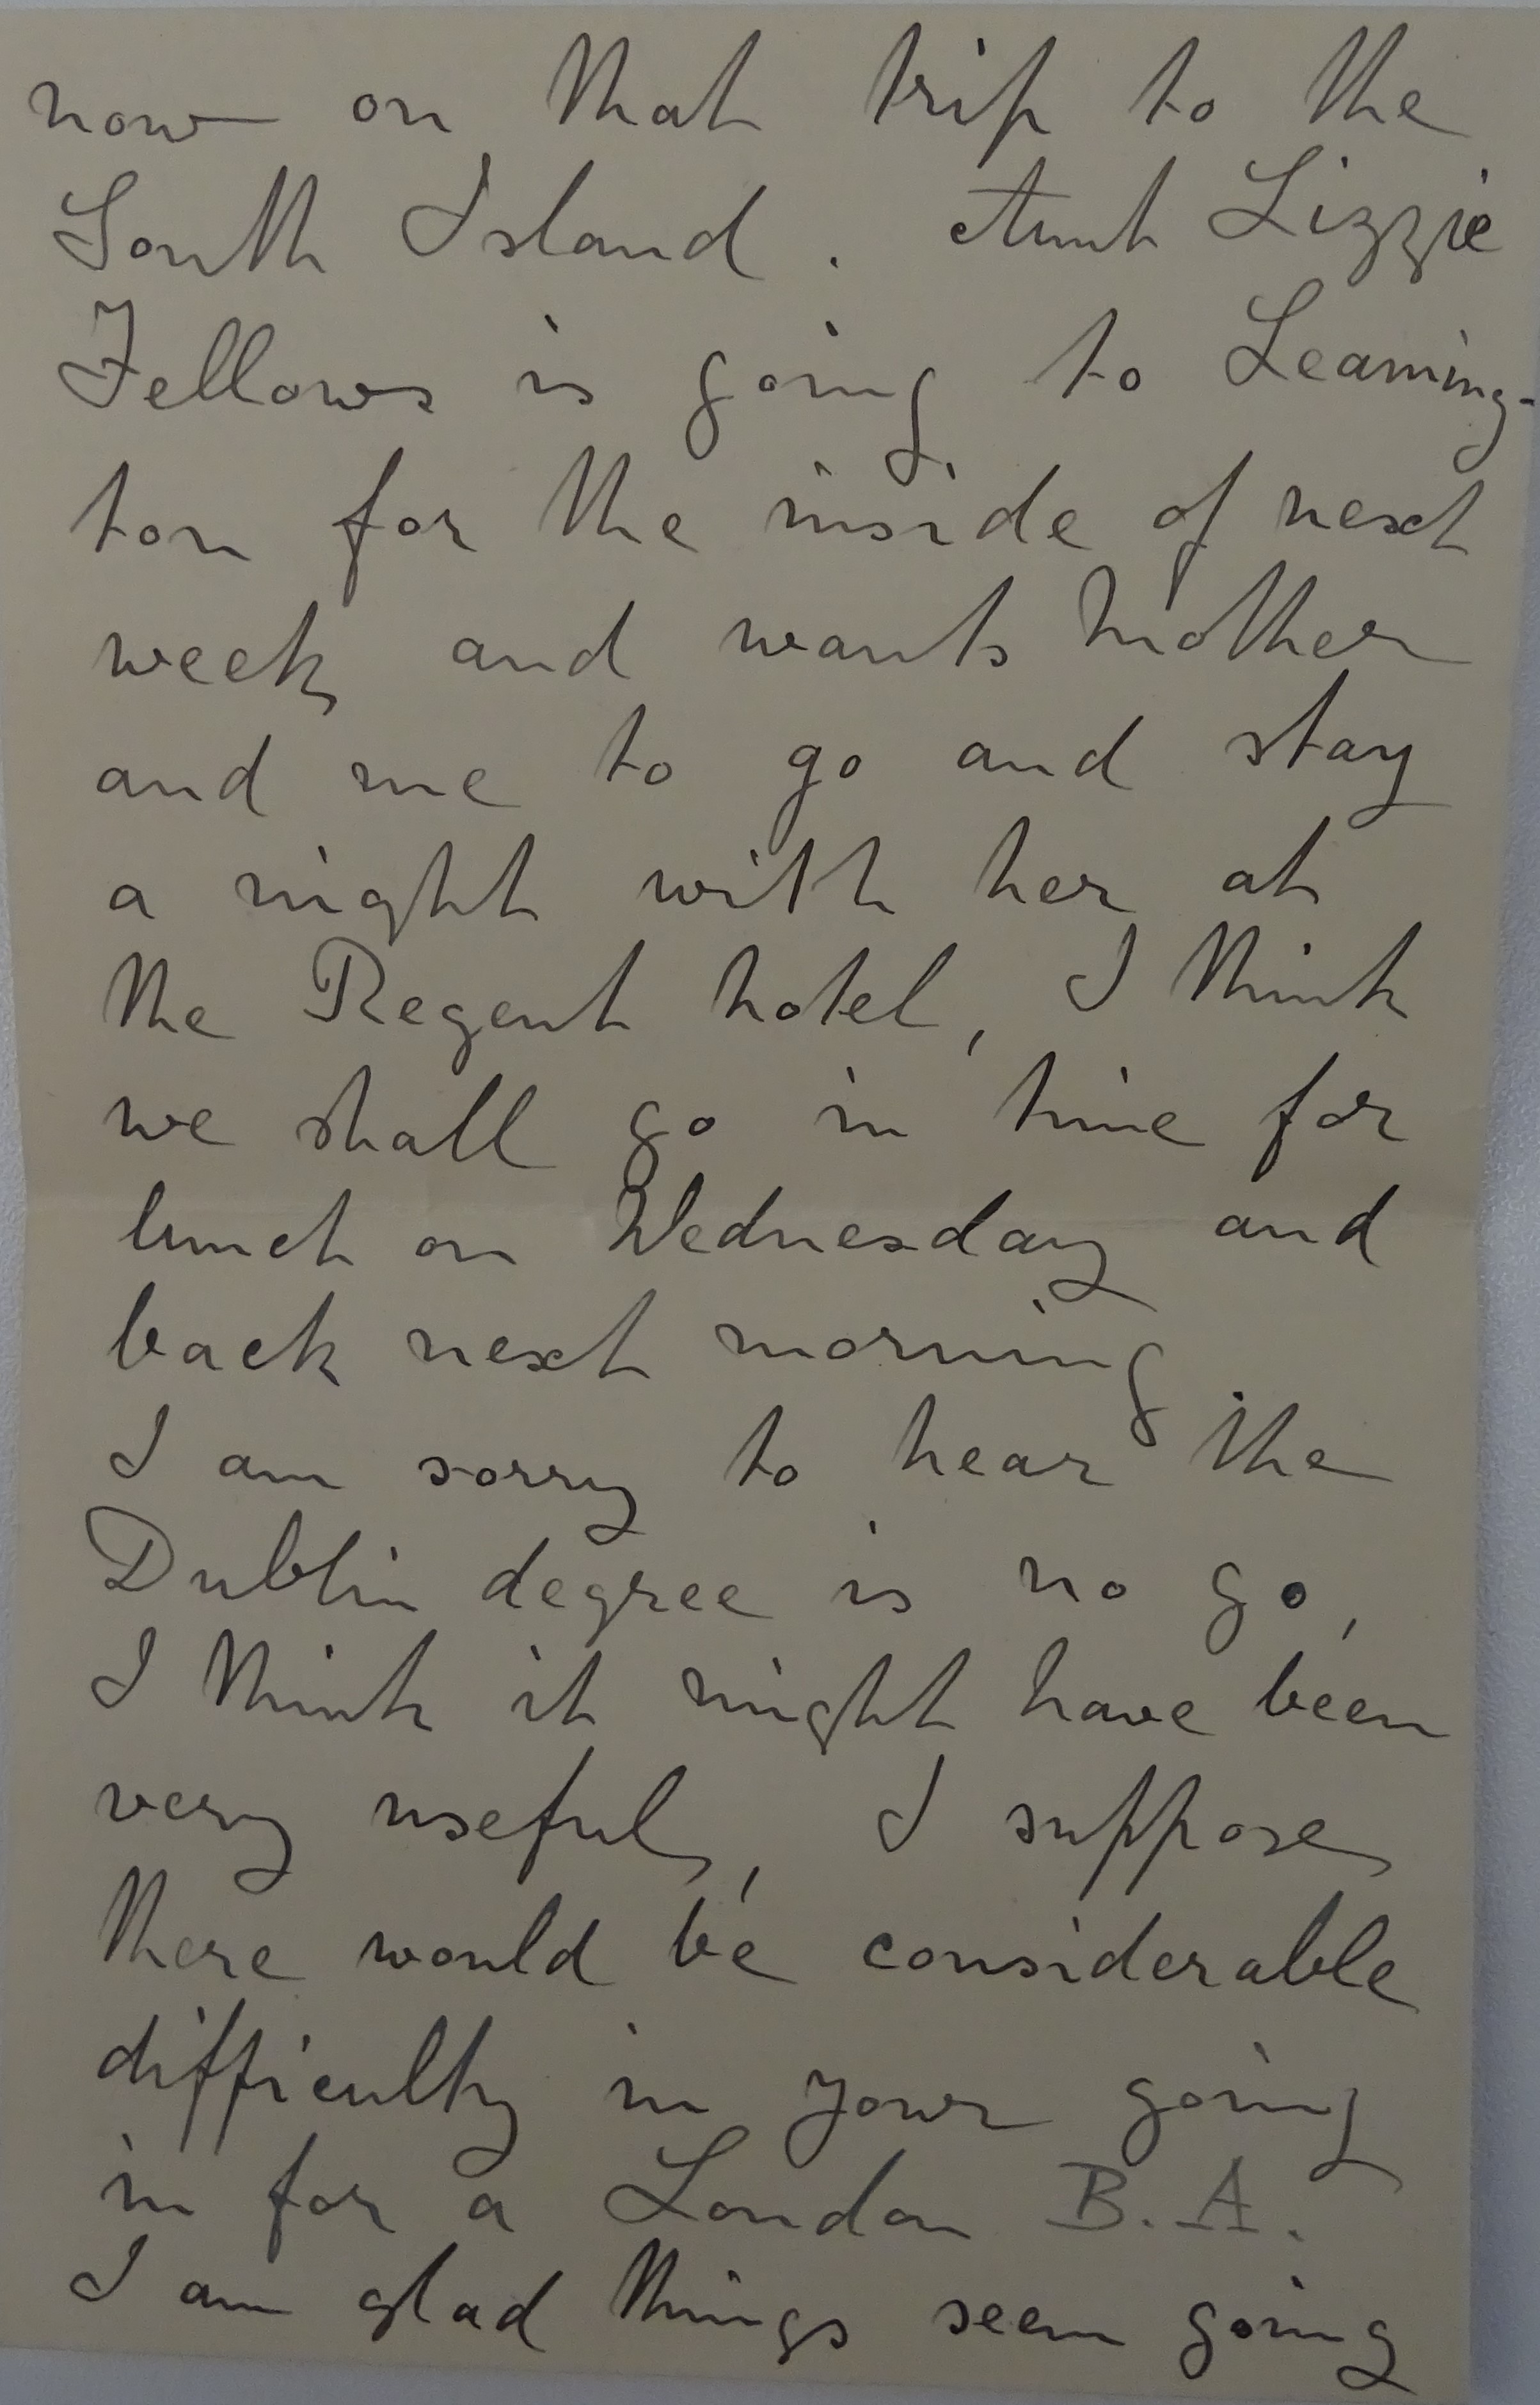 now on that trip to the
South Island. Aunt Lizzie
Fellows is going to Leaming-
ton for the inside of next
week and wants Mother
and me to go and stay
a night with her at
the Regent hotel, I think
we shall go in time for
lunch on Wednesday and
back next morning.
I am sorry to hear the
Dublin degree is no go,
I think it might have been
very useful, I suppose
there would be considerable
difficulty in your going
in for a London B.A.
I am glad things seem going